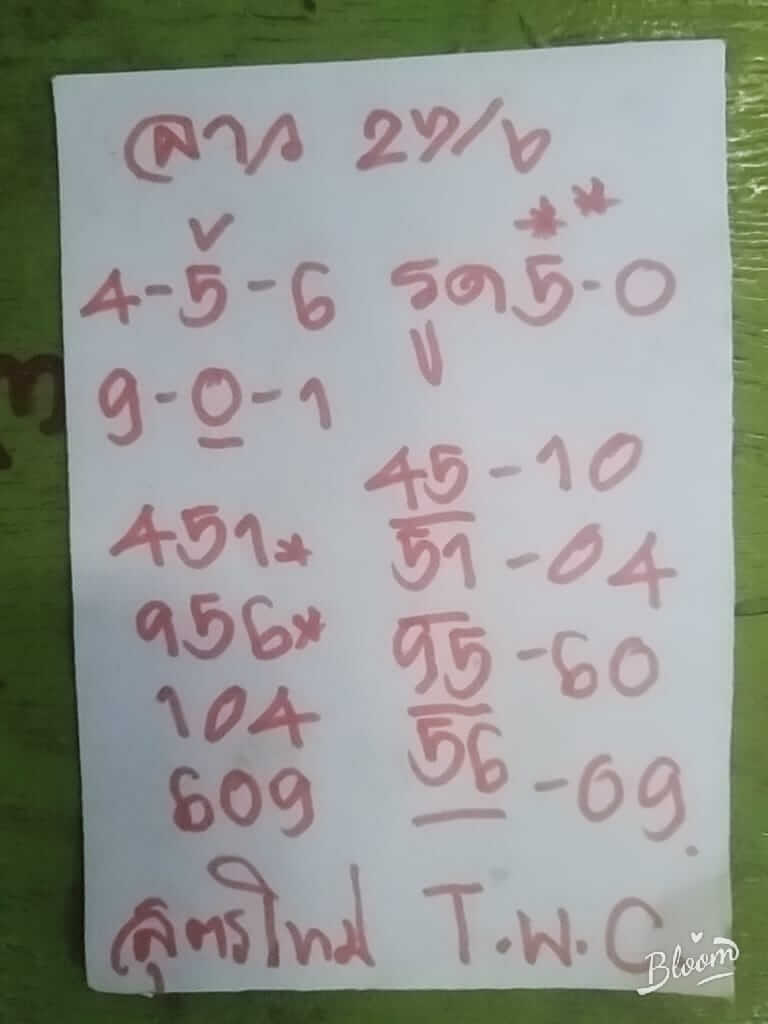 ลาว 27/6
4-5-6 รูด 5-0
9-0-1
451* 45-10
956* 51-04
104 95-60
609 56-09.
สูตรใหม่ T.พ.C
Bloom